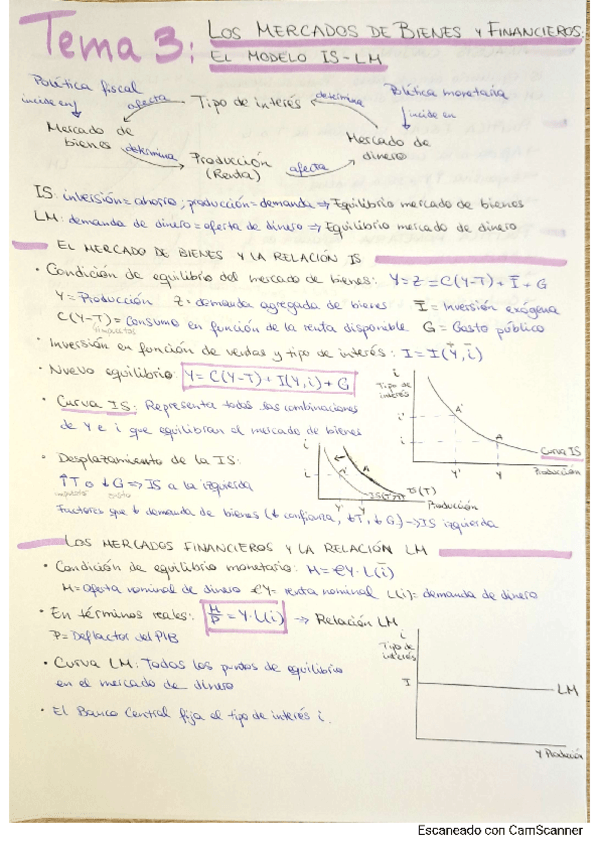 Tema 3: LOS MERCADOS DE BIENES Y FINANCIEROS:
EL MODELO IS-LM
Política fiscal
incide en
afecta
Tipo de interés
determina
Política monetaria
incide en
Mercado de
bienes
determina
Producción
(Renta)
afecta
Mercado de
dinero
IS: inversión = ahorro, producción = demanda ⇒ Equilibrio mercado de bienes
LM: demanda de dinero = oferta de dinero ⇒ Equilibrio mercado de dinero
EL MERCADO DE BIENES Y LA RELACIÓN IS
• Condición de equilibrio del mercado de bienes: Y = Z = C(Y-T) + Ī + G
Y = Producción Z = demanda agregada de bienes Ī = Inversión exógena
C(Y-T) = Consumo en función de la renta disponible G = Gasto público
impuestos
• Inversión en función de ventas y tipo de interés: I = I(Y, i)
+ -
• Nuevo equilibrio: Y = C(Y-T) + I(Y, i) + G
• Curva IS: Representa todas las combinaciones
de Y e i que equilibran el mercado de bienes
i
Tipo de
interés
i'
i
A'
A
Curva IS
Y'
Y
Producción
• Desplazamiento de la IS:
↑T o ↓G ⇒ IS a la izquierda
impuesto gasto
i
i
A'
A
IS(T)
IS(T')
Y' Y
Producción
Factores que ↓ demanda de bienes (↓ confianza, ↑T, ↓G) → IS izquierda
LOS MERCADOS FINANCIEROS Y LA RELACIÓN LM
• Condición de equilibrio monetario: M = €Y · L(i)
-
M = oferta nominal de dinero €Y = renta nominal L(i) = demanda de dinero
• En términos reales: M/P = Y · L(i) → Relación LM
P = Deflactor del PIB
• Curva LM: Todos los puntos de equilibrio
en el mercado de dinero
• El Banco Central fija el tipo de interés i.
i
Tipo de
interés
I
LM
Y Producción
Escaneado con CamScanner